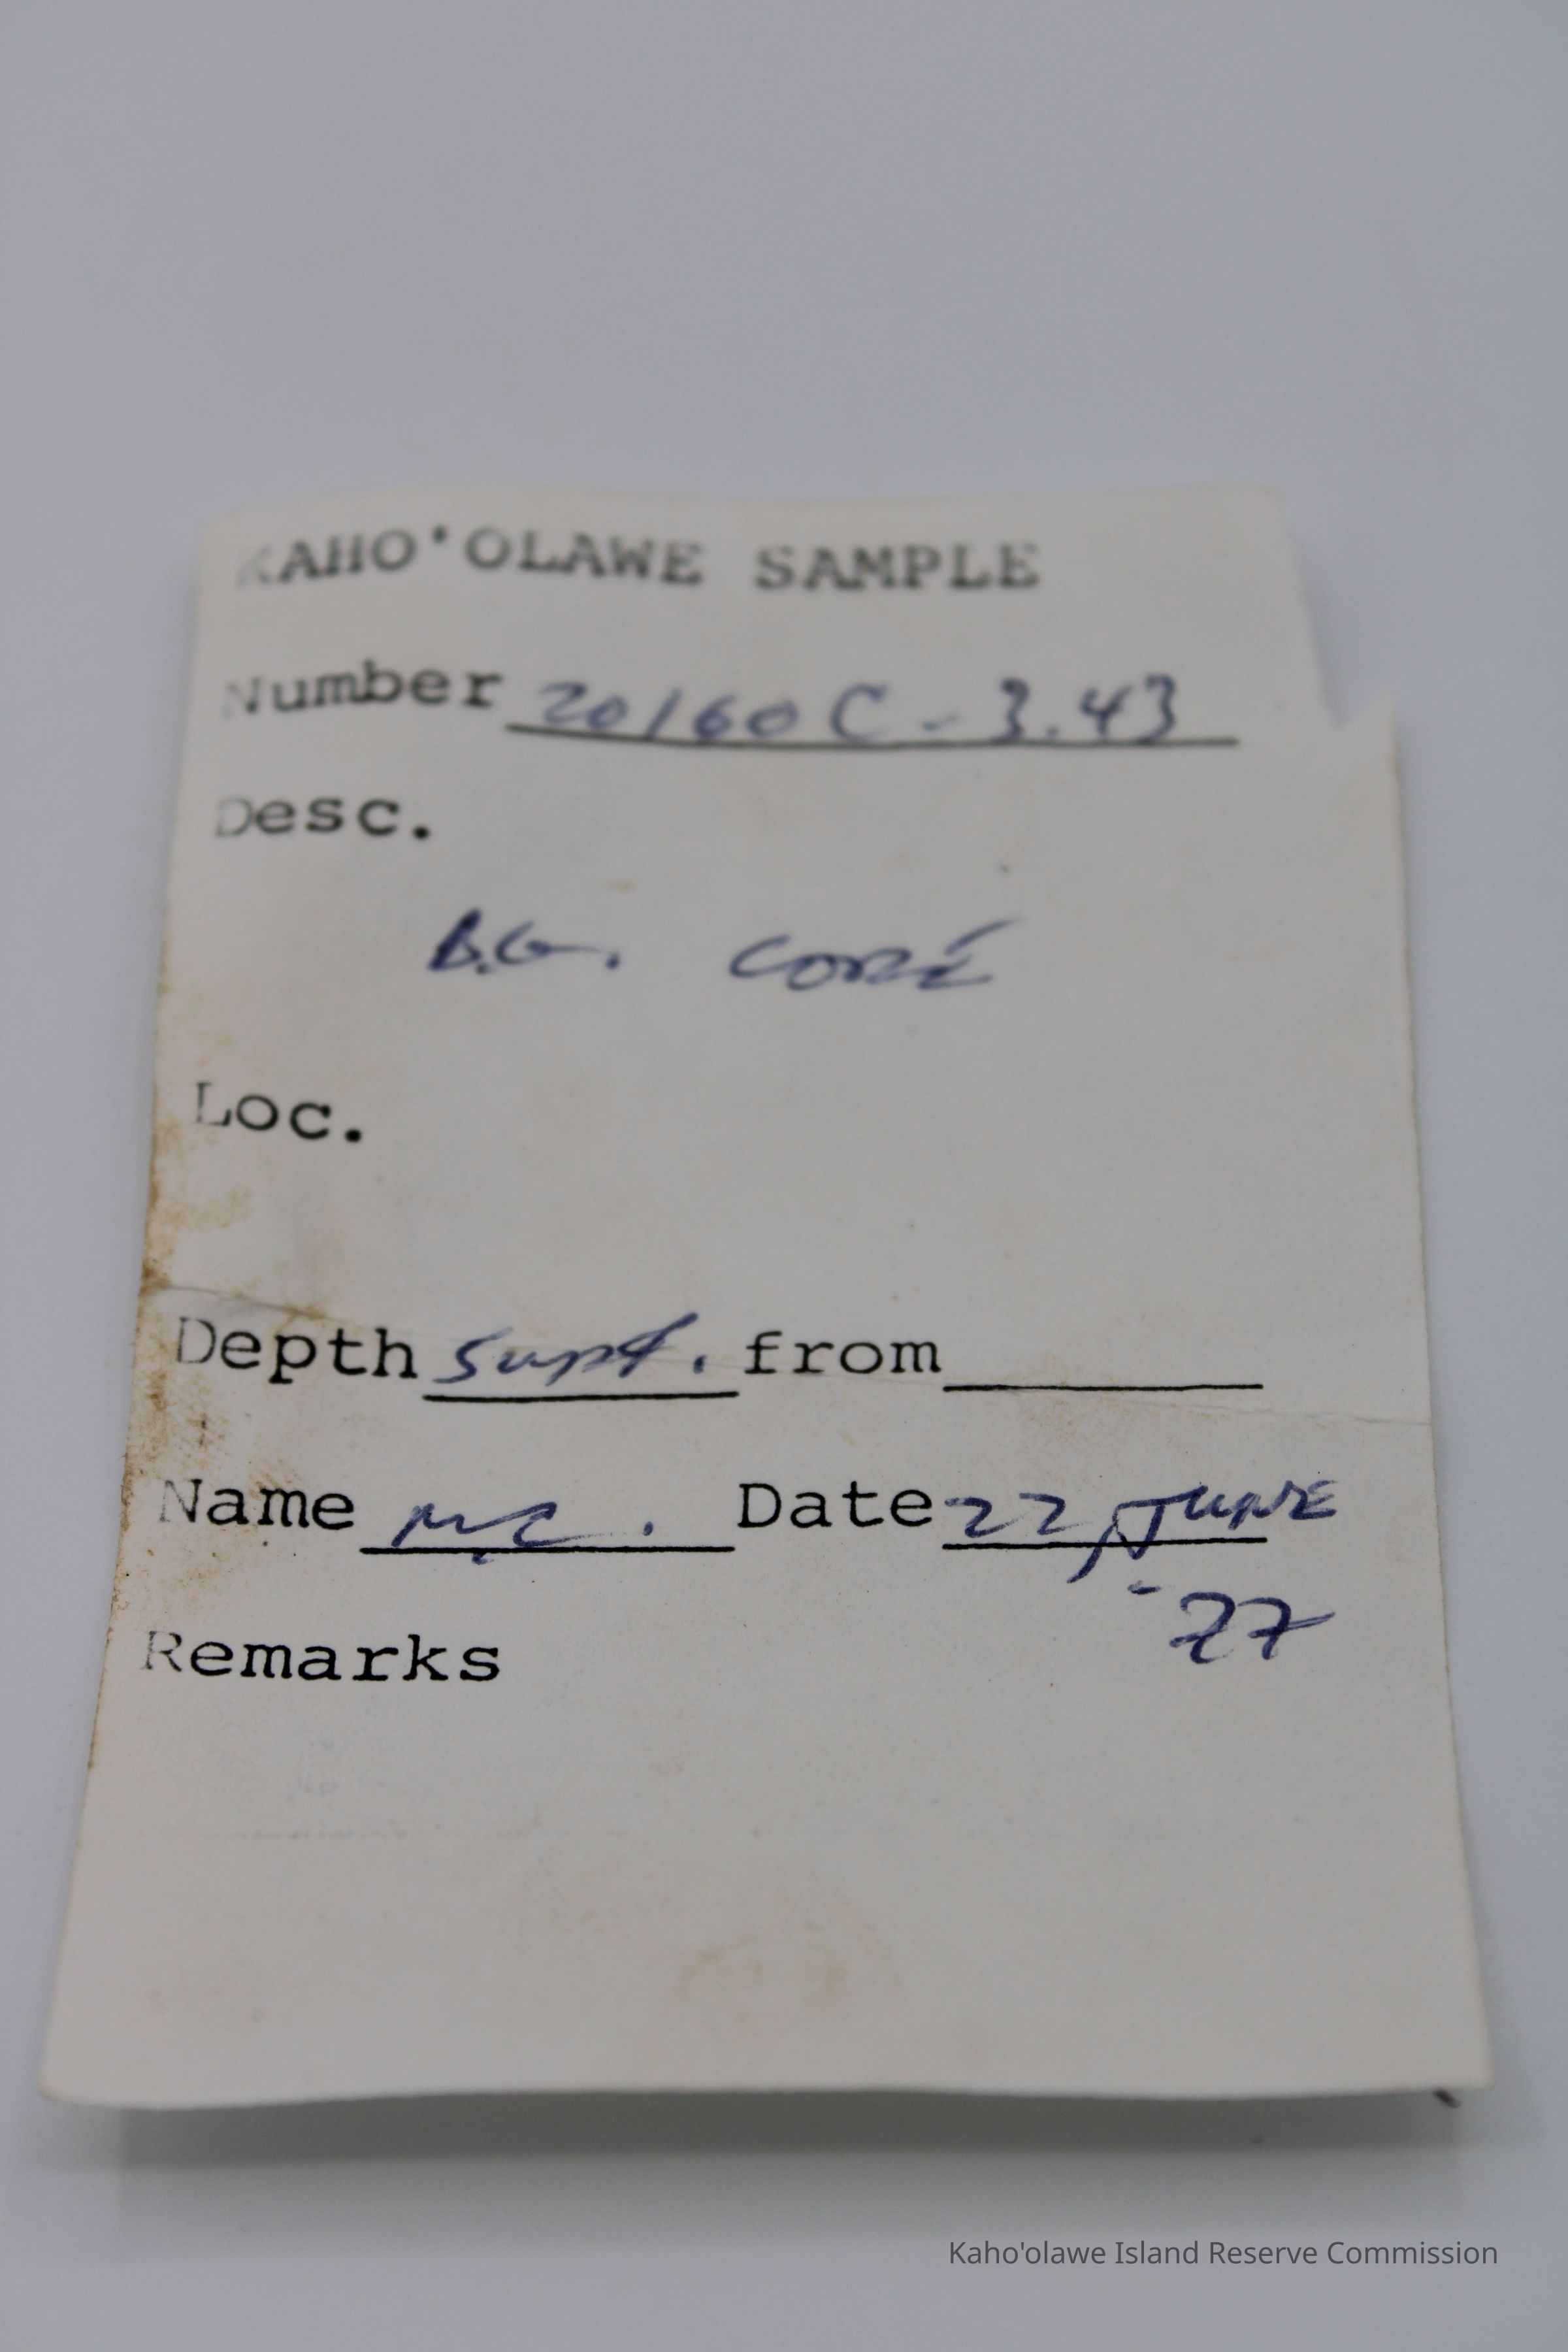 KAHO'OLAWE SAMPLE
Number 20160C - 3.43
Desc.
B.G. CORE
Loc.
Depth surf. from
Name M.C. Date 22 JUNE
- 77
Remarks
Kaho'olawe Island Reserve Commission